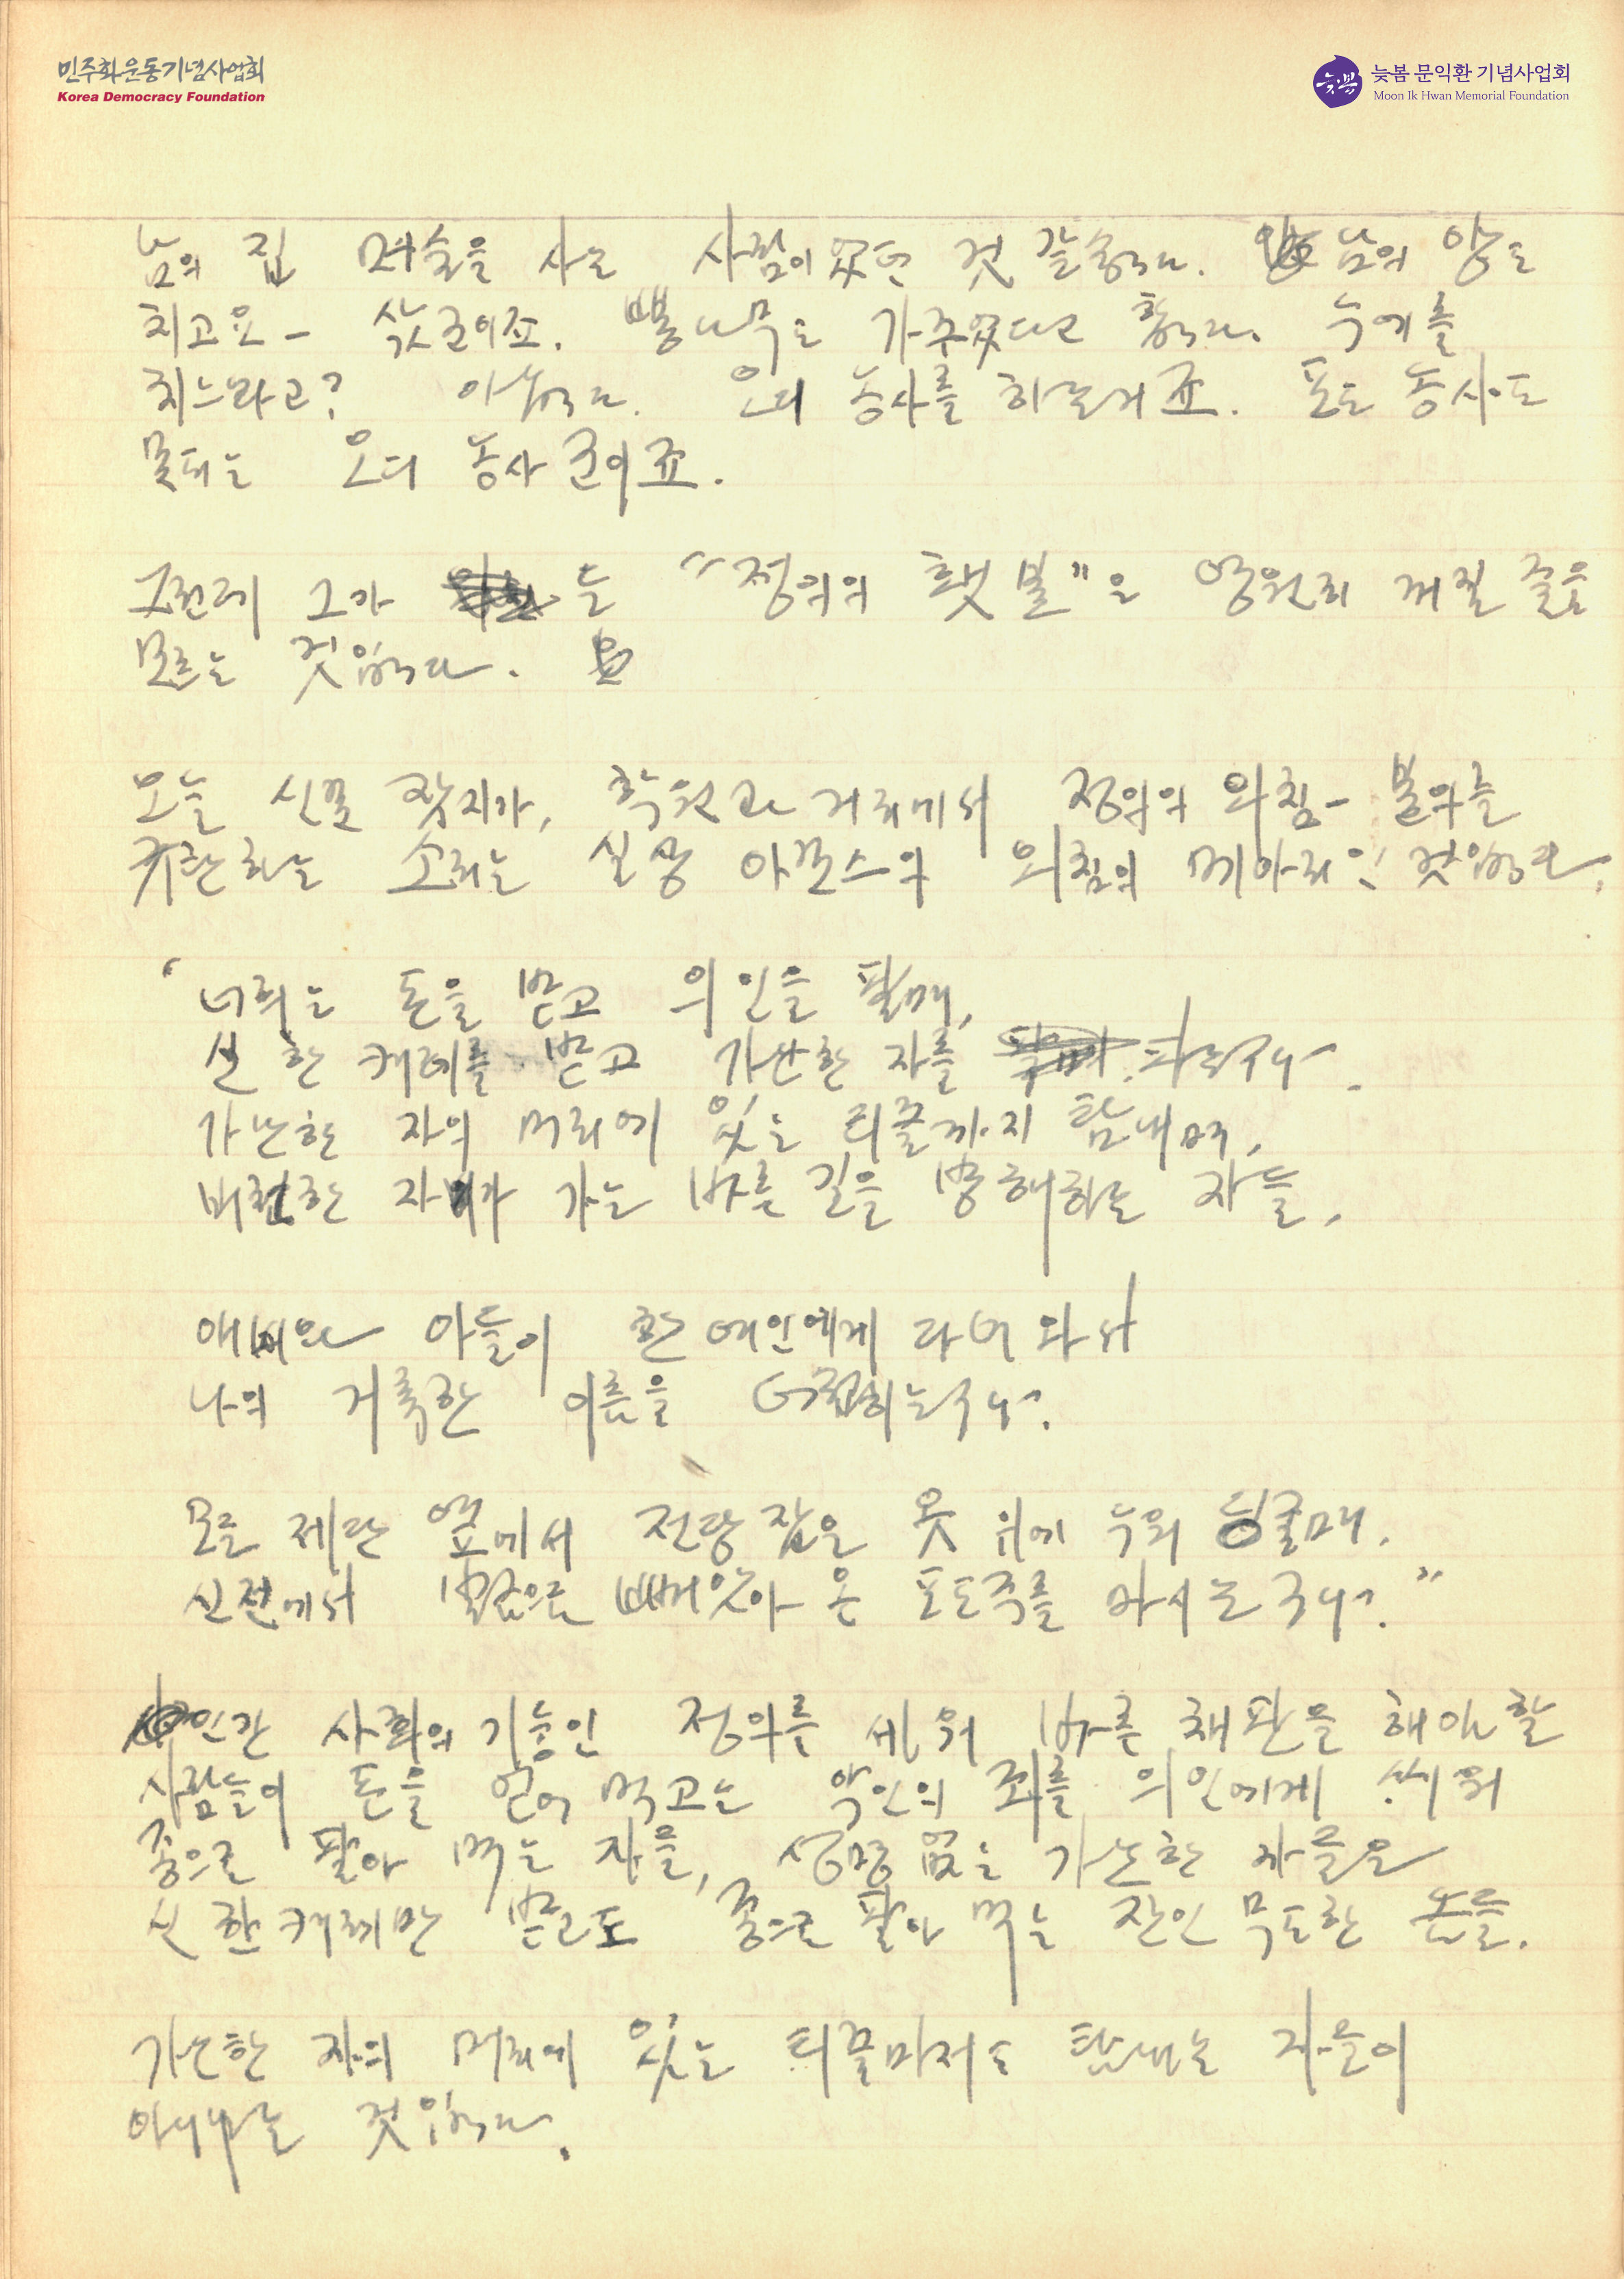 민주화운동기념사업회
Korea Democracy Foundation
늦봄 문익환 기념사업회
Moon Ik Hwan Memorial Foundation
남의 집 머슴을 사는 사람이었던 것 같습니다. 남의 양도
치고요— 삯군이죠. 뽕나무도 가꾸었다고 합니다. 누에를
치느라고? 아닙니다. 오디 농사를 하는거죠. 포도 농사도
못되는 오디 농사군이죠.
그런데 그가 든 "정의의 횃불"은 영원히 꺼질 줄을
모르는 것입니다.
오늘 신문 잡지가, 학원과 거리에서 정의의 외침— 불의를
규탄하는 소리는 실상 아모스의 외침의 메아리인 것입니다.
"너희는 돈을 받고 의인을 팔며,
신 한 켜레를 받고 가난한 자를 파는구나.
가난한 자의 머리에 있는 티끌까지 탐내며,
비천한 자가 가는 바른 길을 방해하는 자들,
애비와 아들이 한 여인에게 다녀와서
나의 거룩한 이름을 더럽히는구나.
모든 제단 옆에서 전당 잡은 옷 위에 누워 딩굴며,
신전에서 벌금으로 빼앗아 온 포도주를 마시는구나."
인간 사회의 기능인 정의를 세워 바른 재판을 해야 할
사람들이 돈을 얻어 먹고는 악인의 죄를 의인에게 씌워
종으로 팔아 먹는 자들, 성명 없는 가난한 자들을
신 한켜레만 받고도 종으로 팔아 먹는 잔인 무도한 놈들.
가난한 자의 머리에 있는 티끌마저도 탐내는 자들이
아니냐는 것입니다.